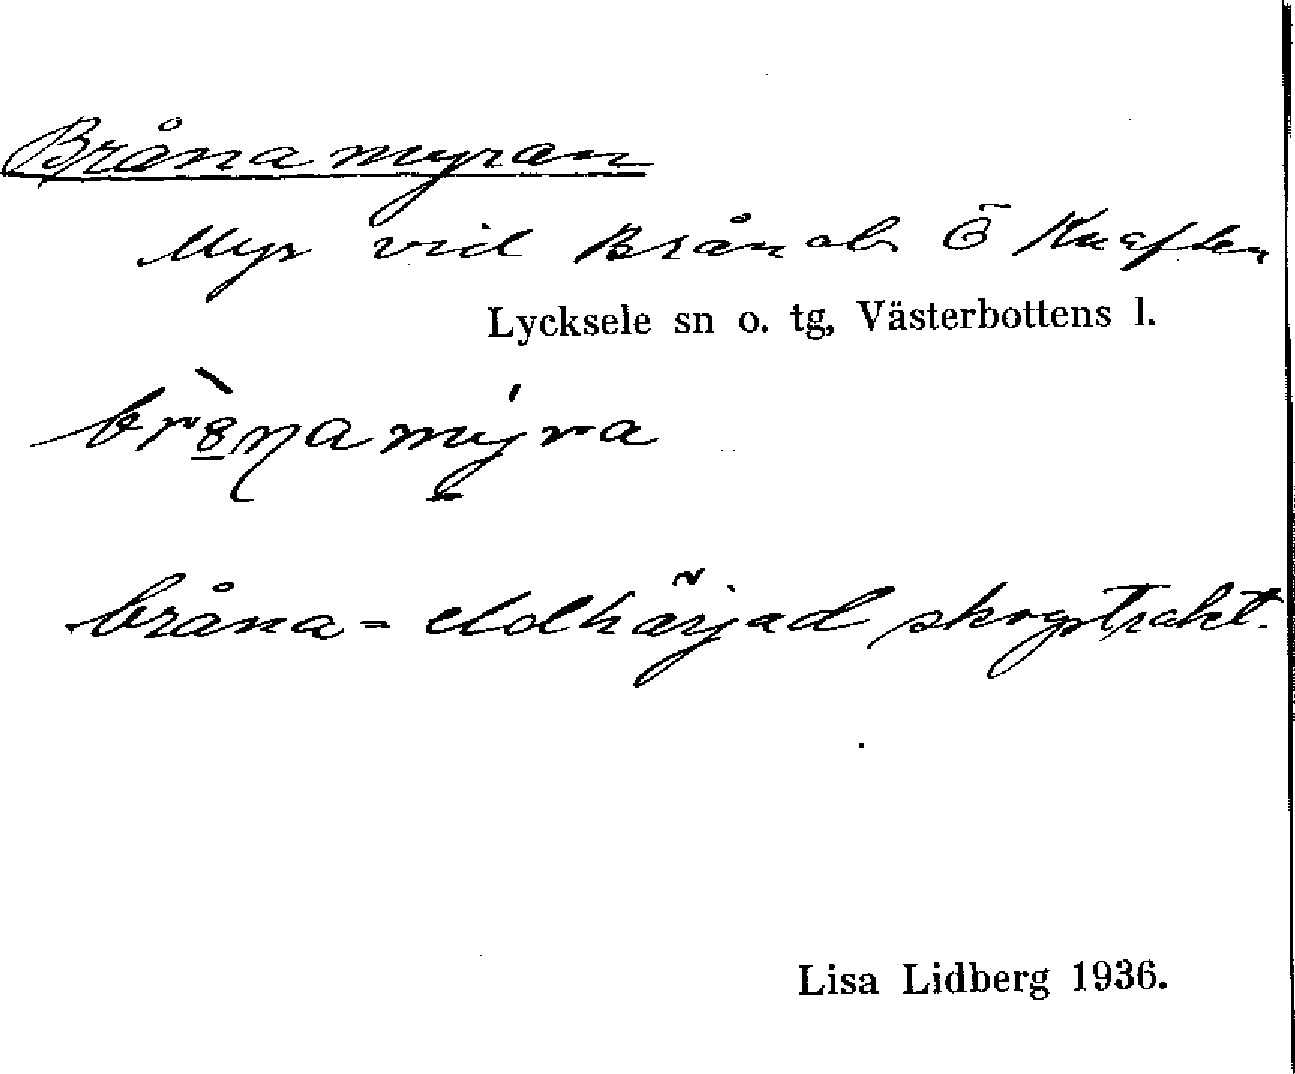 Brånamyran
Myr vid Brånab. Ö Knaften
Lycksele sn o. tg, Västerbottens l.
bråna- eldhärjad skogstrakt.
Lisa Lidberg 1936.